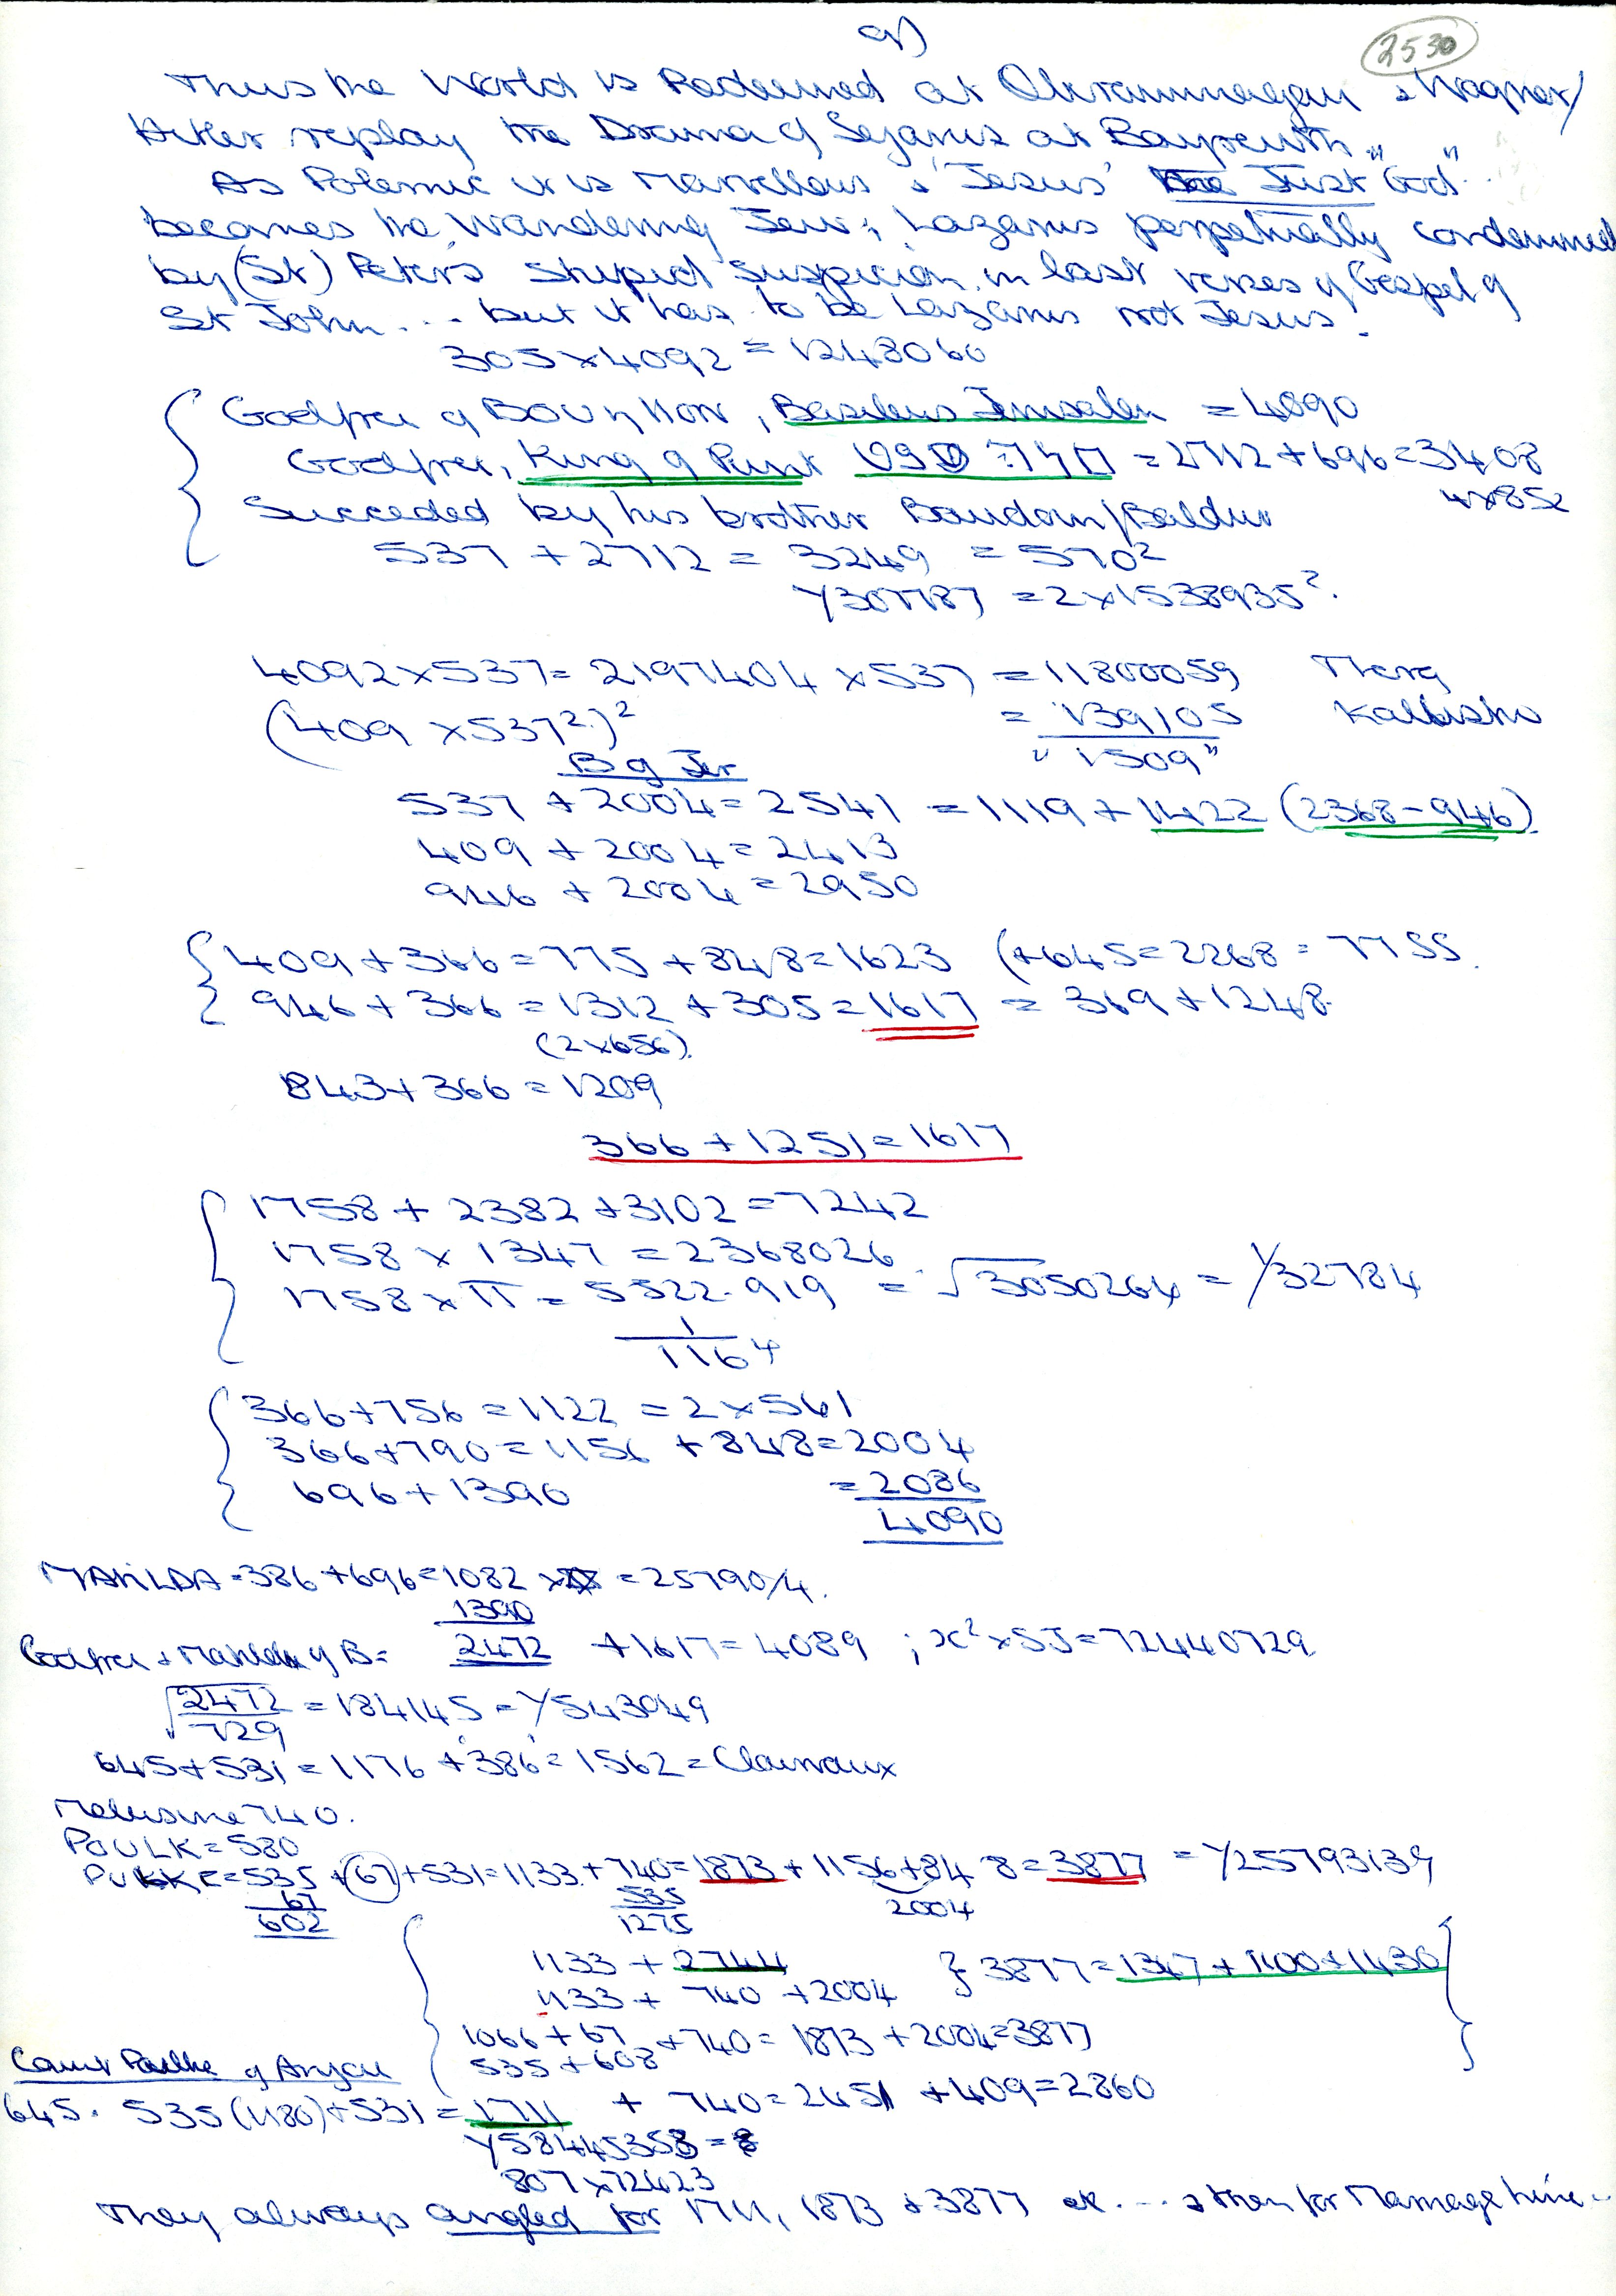 2530
Thus the World is Redeemed at Oberammergau & Wagner/
Hitler replay the Drama of Sejanus at Bayreuth
As Polemic it is marvellous & 'Jesus' the Just "God"..
becomes the Wandering Jew; Lazarus perpetually condemned
by (St) Peters stupid suspicion in last verses of Gospel of
St John... but it has to be Lazarus not Jesus.
305 x 4092 = 1248060
Godfrei of BOUYllon, Basileus Jerusalem = 4090
Godfrei, King of = 2712 + 696 = 3408
4x852
Succeeded by his brother Baudoin/Baldur
537 + 2712 = 3249 = 570²
Y307787 = 2x1538935²
4092x537 = 2197404 x537 = 11800059
(409 x537²)² = 139105 Kallisto
"1509"
B of Jer
537 + 2004 = 2541 = 1119 + 1422 (2368-946)
409 + 2004 = 2413
946 + 2004 = 2950
409 + 366 = 775 + 848 = 1623 (+645 = 2268 = 7755.
946 + 366 = 1312 + 305 = 1617 = 369 + 1248.
(2x656).
843 + 366 = 1209
366 + 1251 = 1617
1758 + 2382 + 3102 = 7242
1758 x 1347 = 2368026
1758 x π = 5522.919 = √3050264 = Y32784
1
1164
366 + 756 = 1122 = 2x561
366 + 790 = 1156 + 848 = 2004
696 + 1390 = 2086
4090
MATILDA = 386 + 696 = 1082 = 25790/4.
1390
Godfrei & Matilda of B = 2472 + 1617 = 4089 ; x² x 55 = 72440729
√2472 = 184145 = Y543049
729
645 + 531 = 1176 + 386 = 1562 = Clairvaux
Melusine 740.
FOULK = 580
535 + 67 + 531 = 1133 + 740 = 1873 + 1156 + 848 = 3877 = Y25793139
67 535 2004
602 1275
1133 + 2744 } 3877 = 1347 + 1100 + 1430
1133 + 740 + 2004
1066 + 67 + 740 = 1873 + 2004 = 3877
535 + 608
Count Foulke of Anjou
645. 535 (1180) + 531 = 1711 + 740 = 2451 + 409 = 2860
Y58445358 = 8
807 x 72423
They always angled for 1711, 1873 & 3877 etc ... & then for Marriage here..